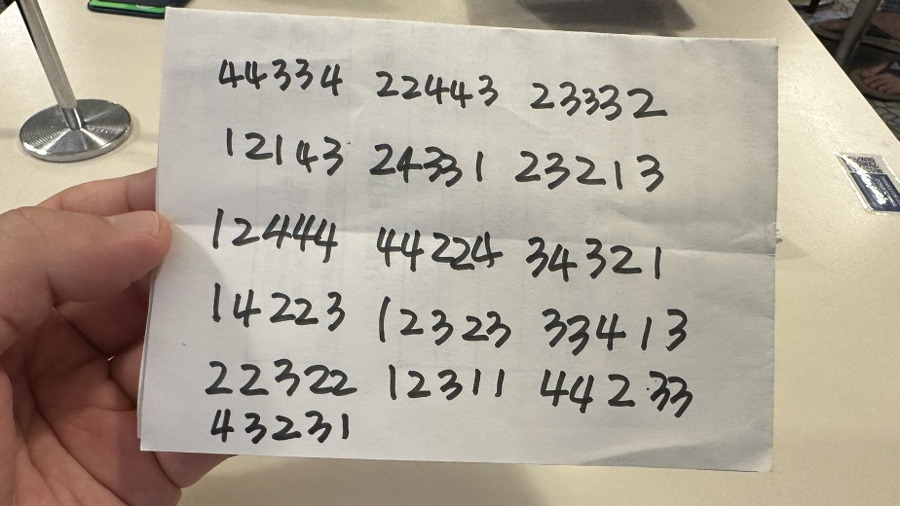 44334 22443 23332
12143 24331 23213
12444 44224 34321
14223 12323 33413
22322 12311 44233
43231